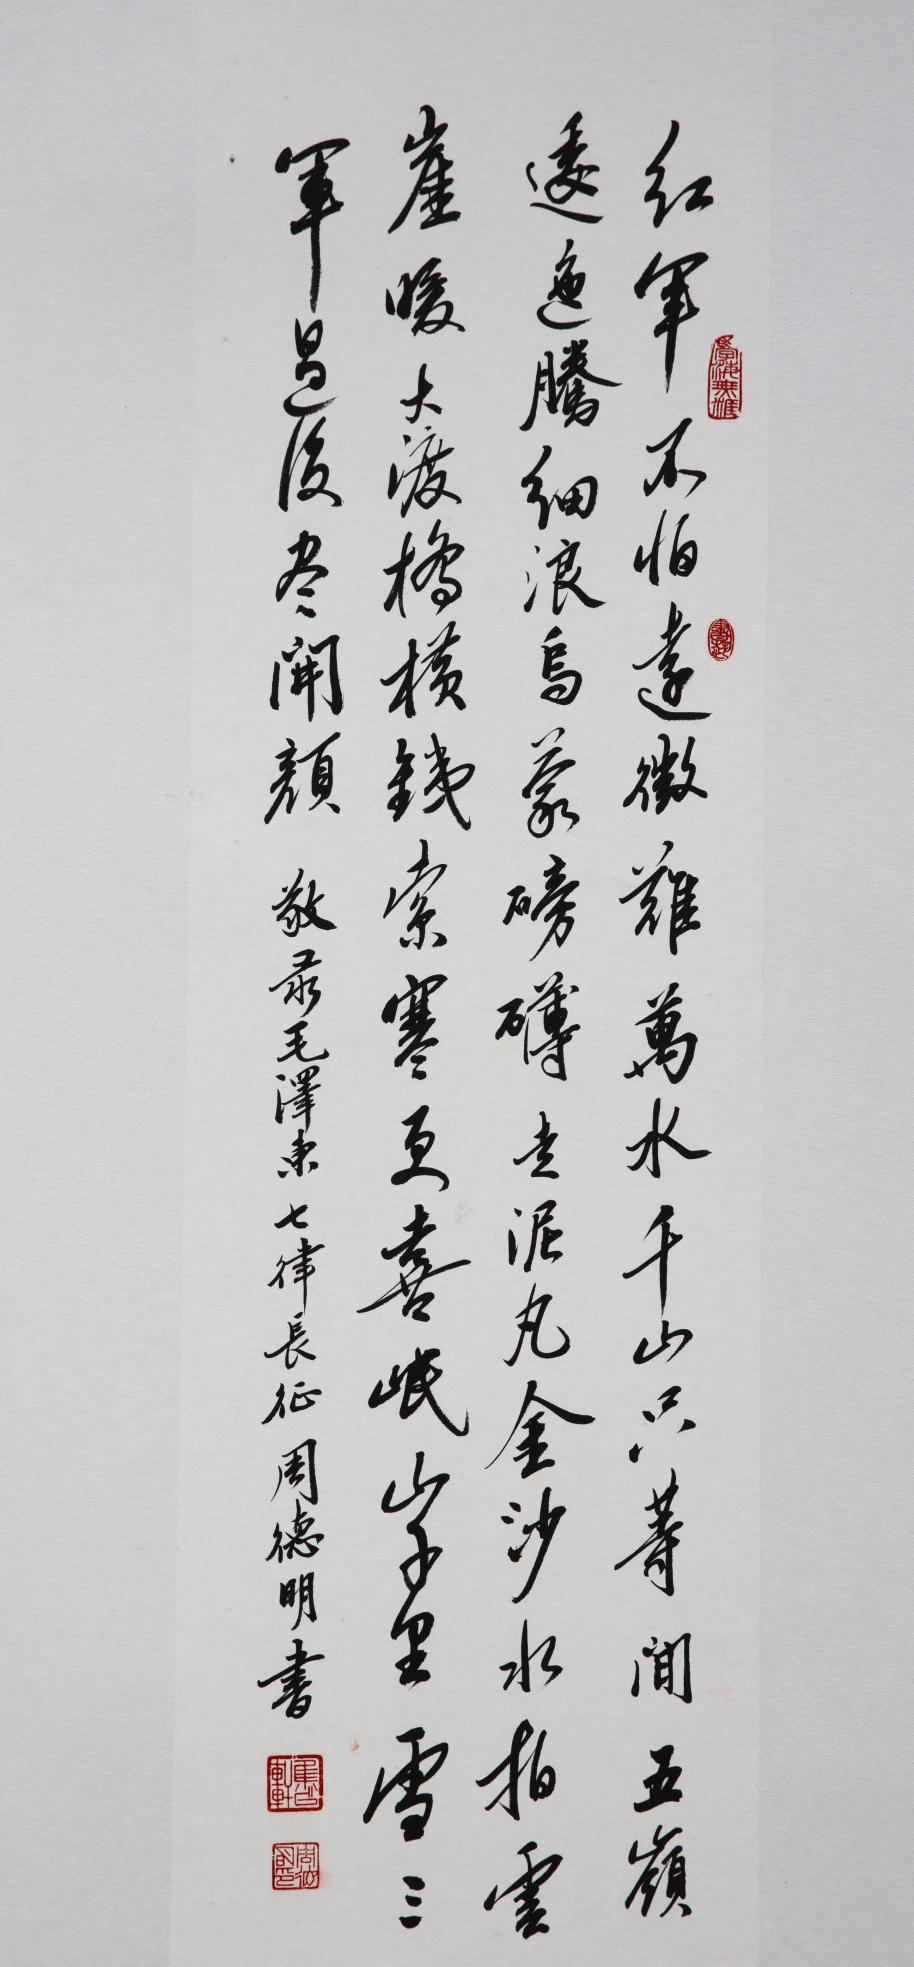 红軍不怕遠徵難萬水千山只等閒五嶺
逶迤騰細浪烏蒙磅礴走泥丸金沙水拍雲
崖暖大渡橋橫鐵索寒更喜岷山千里雪三
軍過後尽開顏 敬录毛澤東七律長征 周德明書
學海無涯